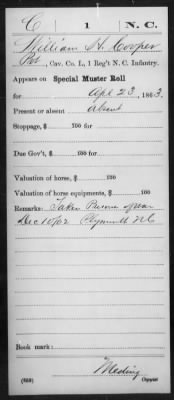 C | 1 | N. C.
William H. Cooper
Pvt, Cav. Co. L, 1 Reg't N. C. Infantry.
Appears on Special Muster Roll
for Apl 23, 1863.
Present or absent absent
Stoppage, $ 100 for
Due Gov't, $ 100 for
Valuation of horse, $ 100
Valuation of horse equipments, $ 100
Remarks: Taken Prisoner near
Dec 10/62 Plymouth N C
Book mark:
(689)
Copyist